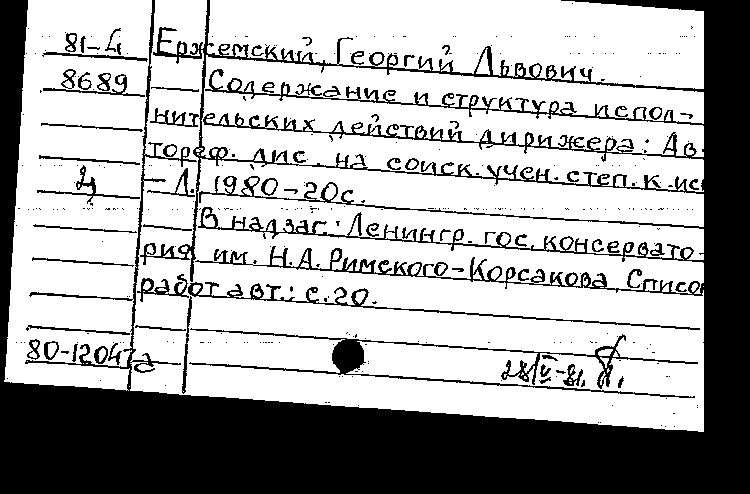 81-4 Ержемский, Георгий Львович.
8689 Содержание и структура испол-
нительских действий дирижера: Ав-
тореф. дис. на соиск. учен. степ. к. ис
– Л., 1980 – 20с.
В надзаг.: Ленингр. гос. консервато-
рия им. Н.А. Римского-Корсакова. Списо
работ авт.: с. 20.
80-12047а 28/V-81.